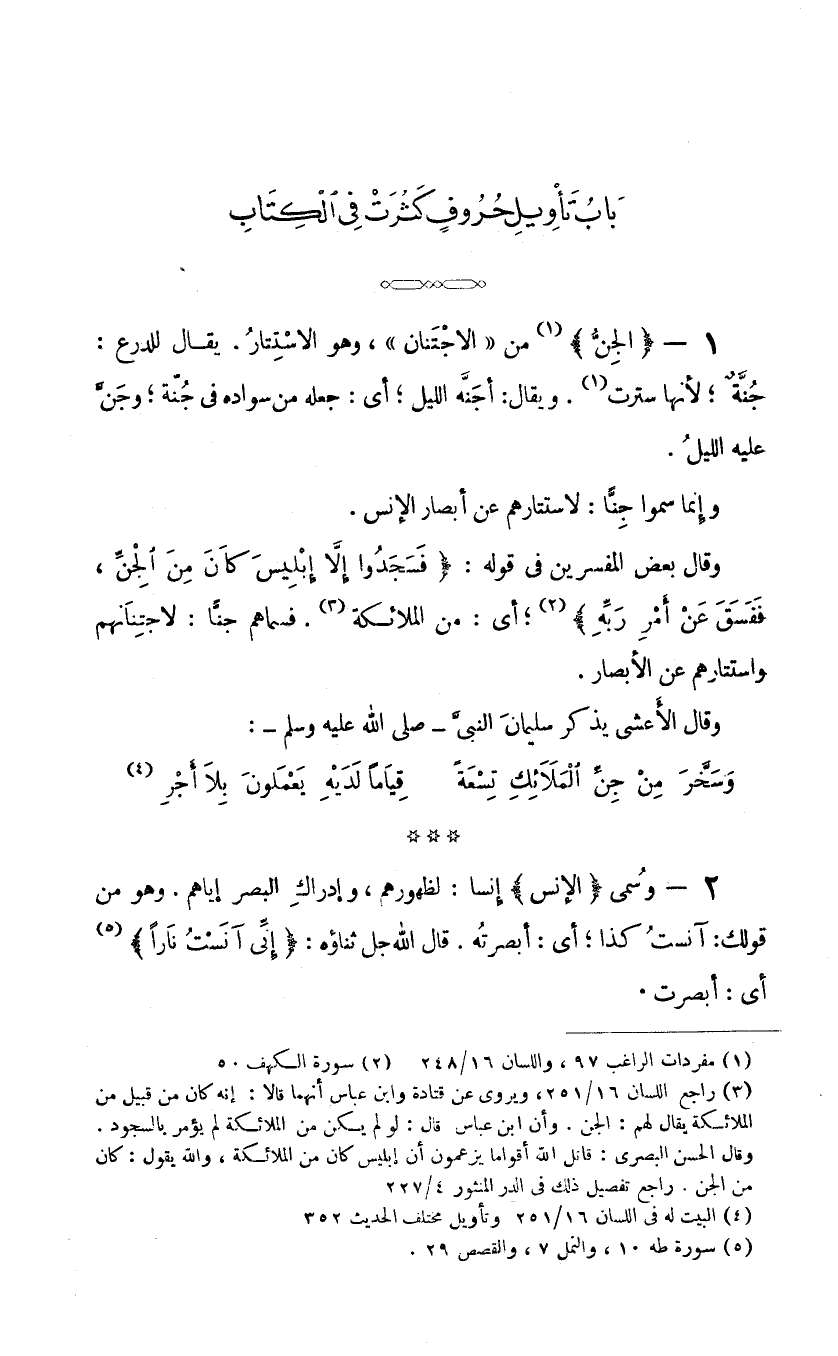 بَابُ تَأْوِيلِ حُرُوفٍ كَثُرَتْ فِي ٱلْكِتَابِ
١ — ﴿ الجِنُّ ﴾ (١) من « الاجْتَنان » ، وهو الاسْتِتارُ . يقـال للدرع :
جُنَّةٌ ؛ لأنها سترت(١) . ويقال: أجَنَّه الليل ؛ أى : جعله من سواده فى جُنّة ؛ وجَنَّ
عليه الليلُ .
وإنما سموا جِنًّا : لاستتارهم عن أبصار الإنس .
وقال بعض المفسرين فى قوله : ﴿ فَسَجَدُوا إِلَّا إِبْلِيسَ كَانَ مِنَ ٱلْجِنِّ ،
فَفَسَقَ عَنْ أَمْرِ رَبِّهِ ﴾ (٢) ؛ أى : من الملائـكة (٣) . فسماهم جنًّا : لاجتِنَانهم
واستتارهم عن الأبصار .
وقال الأَعشى يذكر سليمانَ النبىَّ ـ صلى الله عليه وسلم ـ :
وَسَخَّرَ مِنْ جِنِّ ٱلْمَلَائِكِ تِسْعَةً قِيَاماً لَدَيْهِ يَعْمَلُونَ بِلَا أَجْرِ (٤)
***
٢ — وسُمى ﴿ الإنس ﴾ إنسا : لظهورهم ، وإدراكِ البصر إياهم . وهو من
قولك: آنستُ كذا ؛ أى : أبصرتُه . قال الله جل ثناؤه : ﴿ إِنِّى آنَسْتُ نَاراً ﴾ (٥)
أى : أبصرت .
(١) مفردات الراغب ٩٧ ، واللسان ٢٤٨/١٦ (٢) سورة الـكهف ٥٠
(٣) راجع اللسان ٢٥١/١٦، ويروى عن قتادة وابن عباس أنهما قالا : إنه كان من قبيل من
الملائـكة يقال لهم : الجن . وأن ابن عباس قال : لو لم يـكن من الملائـكة لم يؤمر بالسجود .
وقال الحسن البصرى : قاتل الله أقواما يزعمون أن إبليس كان من الملائـكة ، والله يقول : كان
من الجن . راجع تفصيل ذلك فى الدر المنثور ٢٢٧/٤
(٤) البيت له فى اللسان ٢٥١/١٦ وتأويل مختلف الحديث ٣٥٢
(٥) سورة طه ١٠ ، والنمل ٧ ، والقصص ٢٩ .